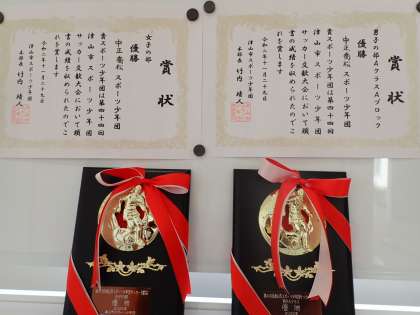 賞状
女子の部
優勝
中正南松スポーツ少年団
貴スポーツ少年団は第四十四回
津山市スポーツ少年団
サッカー交歓大会において頭
書の成績を収められたのでこ
れを賞します
令和二年十一月二十九日
津山市スポーツ少年団
本部長 竹内 靖人
賞状
男子の部AクラスAブロック
優勝
中正南松スポーツ少年団
貴スポーツ少年団は第四十四回
津山市スポーツ少年団
サッカー交歓大会において頭
書の成績を収められたのでこ
れを賞します
令和二年十一月二十九日
津山市スポーツ少年団
本部長 竹内 靖人
優勝
優勝